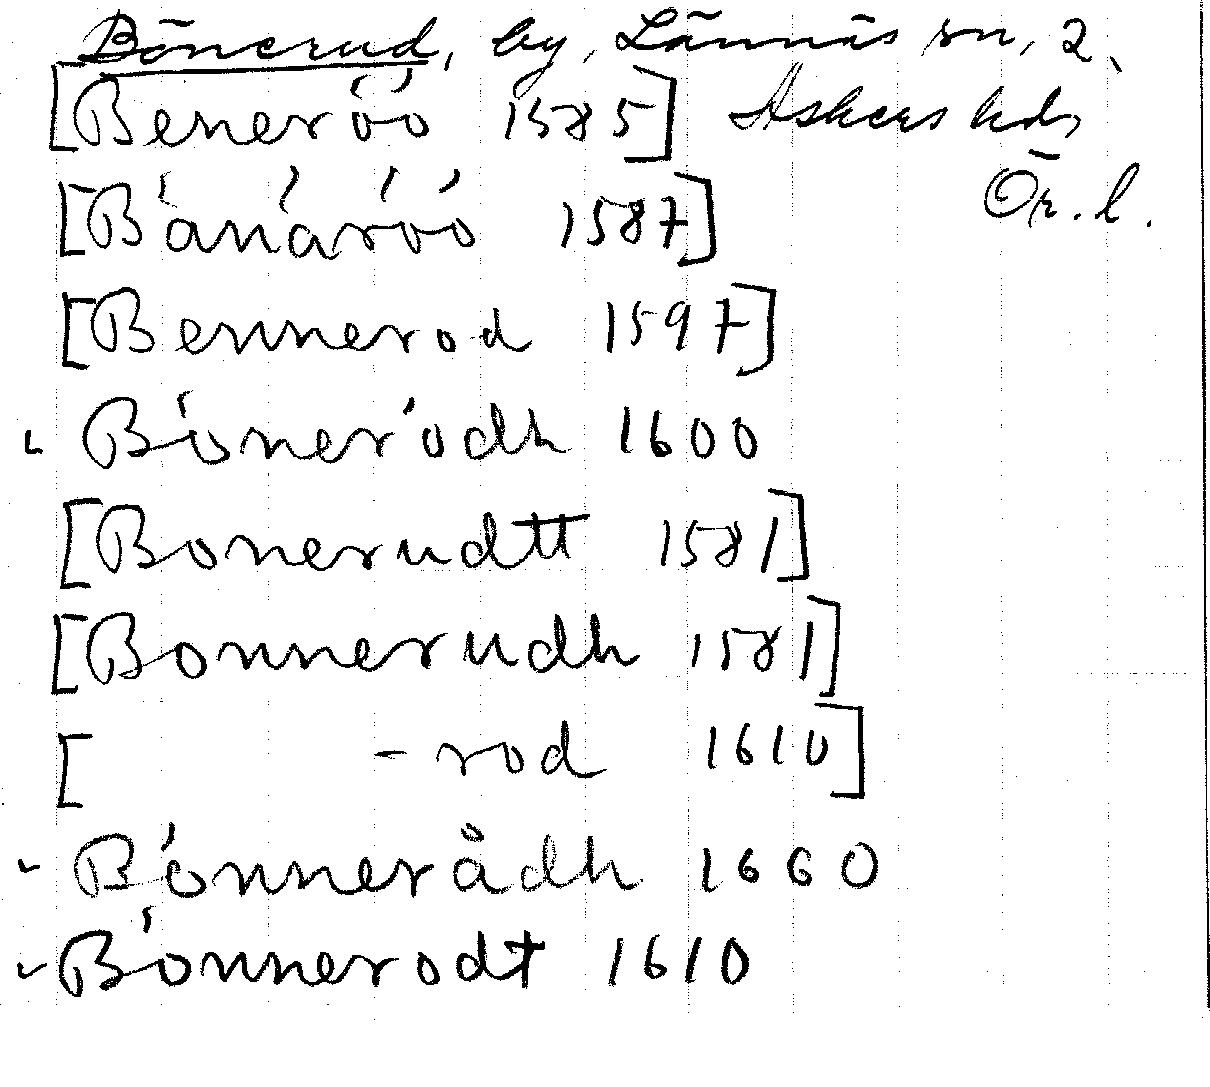 Bönerud, by, Lännäs sn, 2,
[Beneróó 1585] Askers hd,
[Bánáróó 1587] Ör. l.
[Bennerod 1597]
Bóneródh 1600
[Bonerudtt 1581]
[Bonnerudh 1581]
[ - rod 1610]
Bónnerådh 1660
Bónnerodt 1610